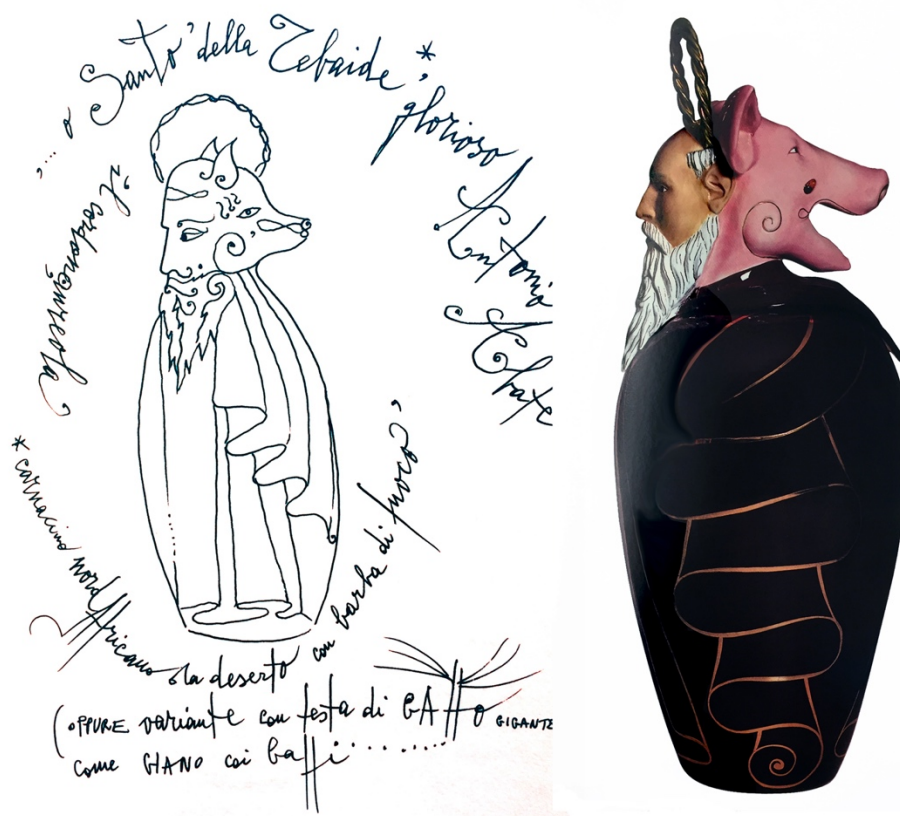 ....o Santo della Tebaide*,
glorioso
Antonio
Abate
il
* carnacino nordAfricano da deserto con barba di fuoco
(OPPURE variante con testa di GATTO GIGANTE
come GIANO coi baffi..........